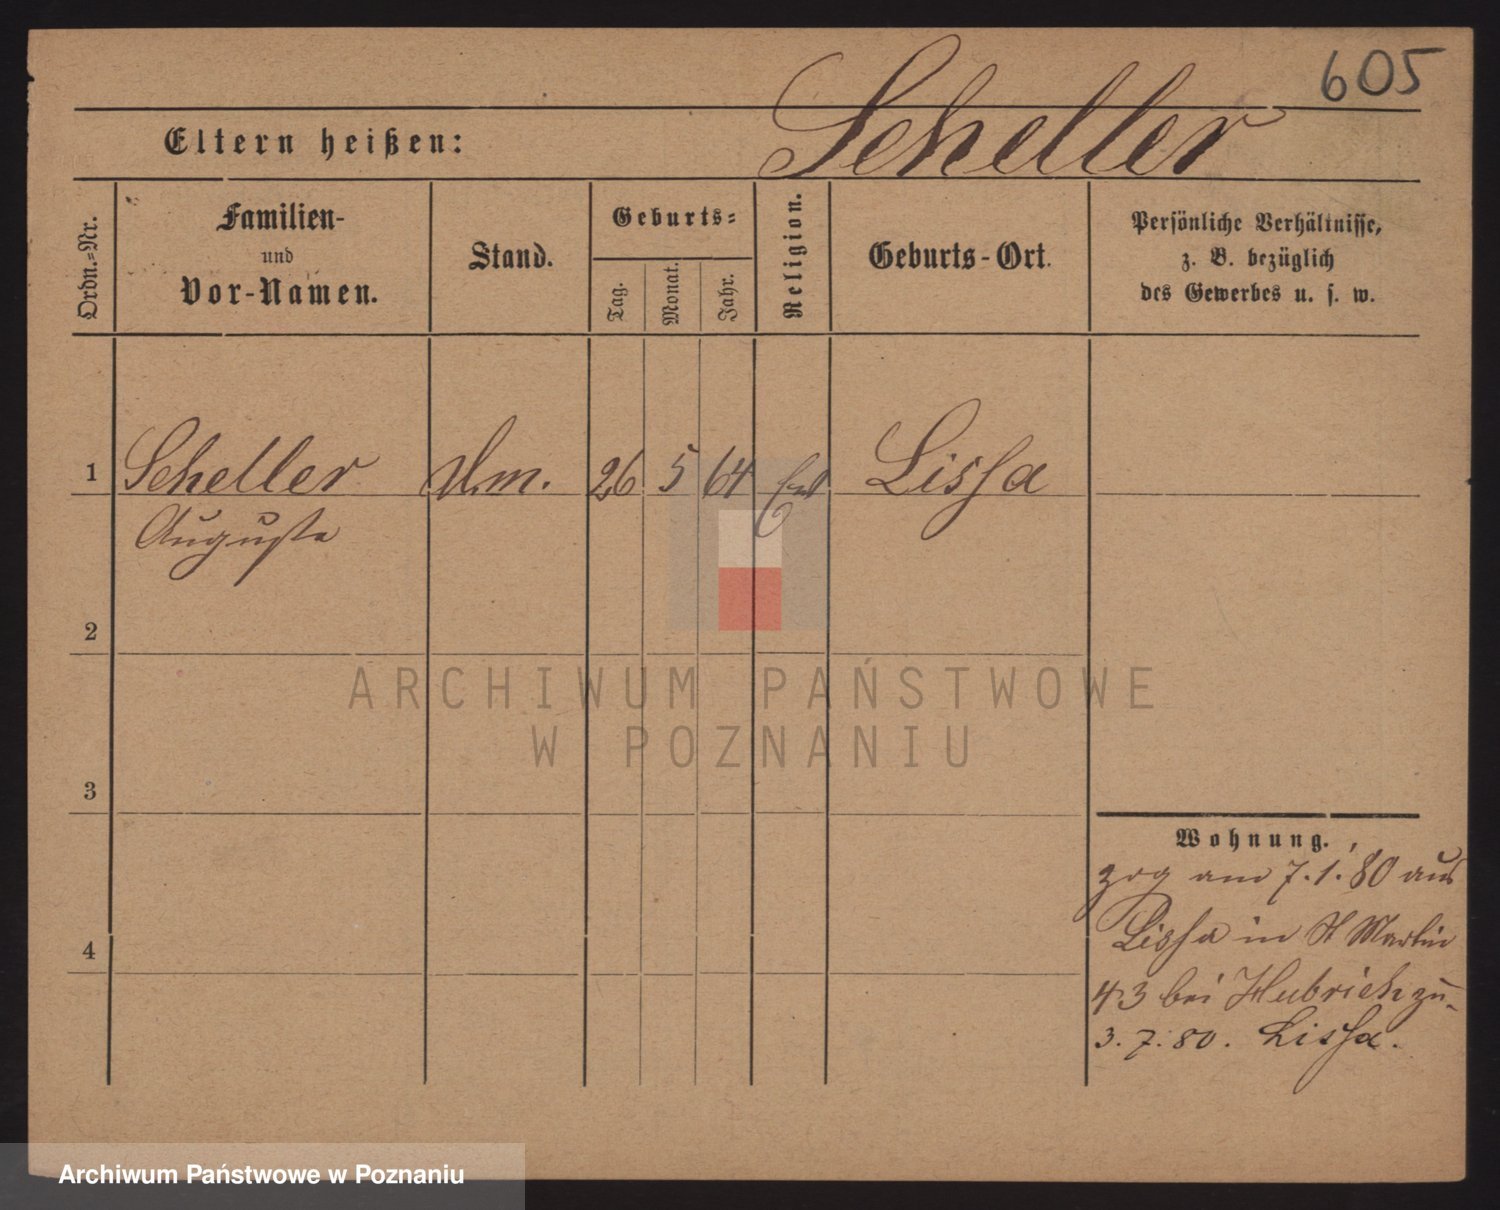 605
Scheller
Eltern heißen:
Ordn.=Nr.
Familien-
und
Vor-Namen.
Stand.
Geburts=
Tag.
Monat.
Jahr.
Religion.
Geburts-Ort.
Persönliche Verhältnisse,
z. B. bezüglich
des Gewerbes u. s. w.
1 Scheller 26 5 64 Lissa
Auguste
2
3
4
Wohnung.
zog am 7.1.80 aus
Lissa in St Martin
43 bei Hubrich zu-
3.7.80. Lissa.
ARCHIWUM PAŃSTWOWE
W POZNANIU
Archiwum Państwowe w Poznaniu